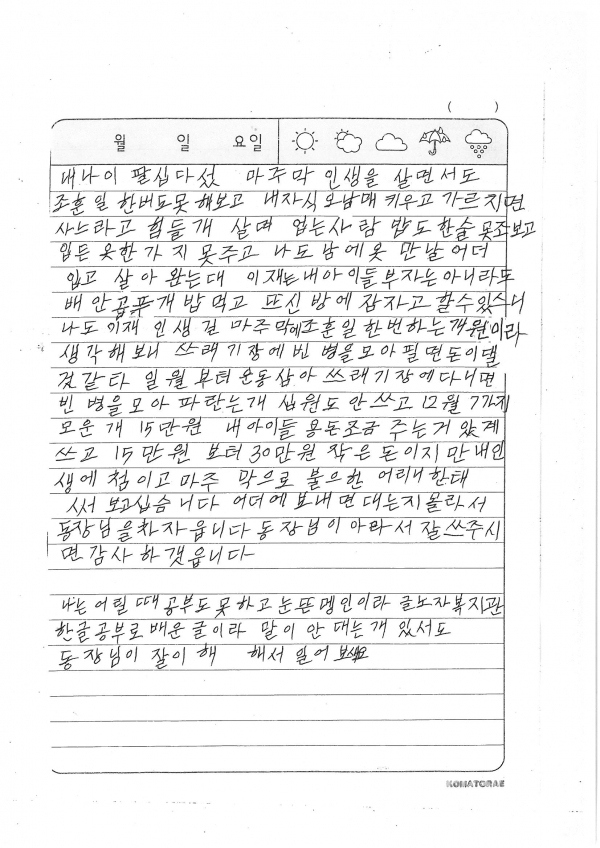 ( )
월 일 요일
내나이 팔십다섰 마주막 인생을 살면서도
조훈일 한버도못해보고 내자식 오남매 키우고 가르지면
사느라고 힘들개 살며 업는사람 밥도한술못조보고
입든 옷한가지 못주고 나도 남에옷 만날 어더
입고 살아 왔는대 이재는내아이들부자는아니라도
배안곱푸개 밥먹고 뜨신 방에 잠자고 할수있스니
나도 이재 인생길 마주막에조훈일한번하는개원이라
생각해보니 쓰래기장에빈병을모아필면돈이댈
것같타 일월부터운동삼아쓰래기장에다니면
빈병을모아 파란는개 십원도안쓰고 12월 7가지
모운개 15만원 내아이들 용돈조금 주는거 았계
쓰고 15만원 보터 30만원 작은 돈이지만 내인
생에 첨이고마주 막으로 불으한 어리니한태
써보고십슴니다 어더에보내면대는지몰라서
동장님을차자읍니다동장님이아라서잘쓰주시
면감사하겟읍니다
나는어릴때공부도못하고눈뜬멩인이라 글노자복지관
한글공부로배운글이라 말이안대는개있서도
동장님이잘이해 해서일어보세요
KOMATORAE